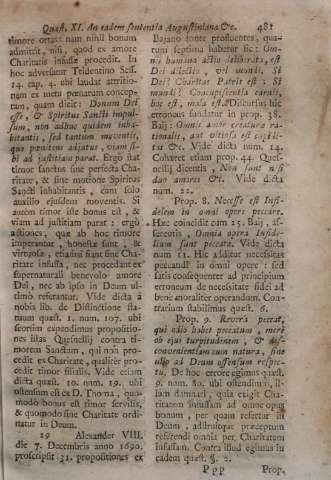 Quæst. XI. An eadem sententia Augustiniana &c. 481
timore ortam nam nihil bonum
admittit, nisi, quod ex amore
Charitatis infusæ procedit. In
hoc adversatur Tridentino Sess.
14. cap. 4. ubi laudat attritio-
nem ex metu pœnarum concep-
tam, quam dicit: Donum Dei
esse, & Spiritus Sancti impul-
sum, non adhuc quidem inha-
bitantis, sed tantum moventis,
quo pœnitens adjutus, viam si-
bi ad justitiam parat. Ergo stat
timor sanctus sine perfecta Cha-
ritate, & sine motione Spiritus
Sancti inhabitantis, cum solo
auxilio ejusdem moventis. Si
autem timor iste bonus est, &
viam ad justitiam parat: ergò
actiones, quæ ab hoc timore
imperantur, honestæ sunt, &
virtuosæ, etiamsi sint sine Cha-
ritate infusa, nec procedant ex
supernaturali benevolo amore
Dei, nec ab ipso in Deum ul-
timò referantur. Vide dicta à
nobis lib. de Dissinctione sta-
tuum quæst. 1. num. 197. ubi
seorsim expendimus propositio-
nes istas Quesnelli contra ti-
morem Sanctum, qui non pro-
cedit ex Charitate, qualiter pro-
cedit timor filialis. Vide etiam
dicta quæst. 10. num. 19. ubi
ostensum est ex D. Thoma, quo-
modo bonus est timor servilis,
& quomodo sine Charitate ordi-
natur in Deum.
29 Alexander VIII.
die 7. Decembris anno 1690.
proscripsit 31. propositiones ex
Bajano fonte profluentes, qua-
rum septima habetur sic: Om-
nis humana actio deliberata, est
Dei dilectio, vel mundi. Si
Dei? Charitas Patris est: Si
mundi? Concupiscentia carnis,
hoc est, mala est. Discursus hic
erroneus fundatur in prop. 38.
Baij: Omnis amor creaturæ ra-
tionalis, aut vitiosa est cupidi-
tas &c. Vide dicta num. 14.
Cohæret etiam prop. 44. Ques-
nellij dicentis, Non sunt nisi
duo amores &c. Vide dicta
num. 22.
Prop. 8. Necesse est Infi-
delem in omni opere peccare.
Hæc coincidit cum 25. Baij, as-
serentis, Omnia opera Infide-
lium sunt peccata. Vide dicta
num. 11. Hic additur necessitas
peccandi in omni opere: sed
satis consequenter ad principium
erroneum de necessitate fidei ad
bene moraliter operandum. Con-
trarium stabilimus quæst. 6.
Prop. 9. Revera peccat,
qui odio habet peccatum, merè
ob ejus turpitudinem, & dis-
convenientiam cum natura, sine
ullo ad Deum offensum respec-
tu. De hoc errore egimus quæst.
9. num. 80. ubi ostendimus, il-
lam damnari, quia exigit Cha-
ritatem infusam ad omne opus
bonum, per quam referatur in
Deum, adstruitque præceptum
referendi omnia per Charitatem
infusam. Contra illud egimus in
eadem quæst. §. 2.
P p p Prop.